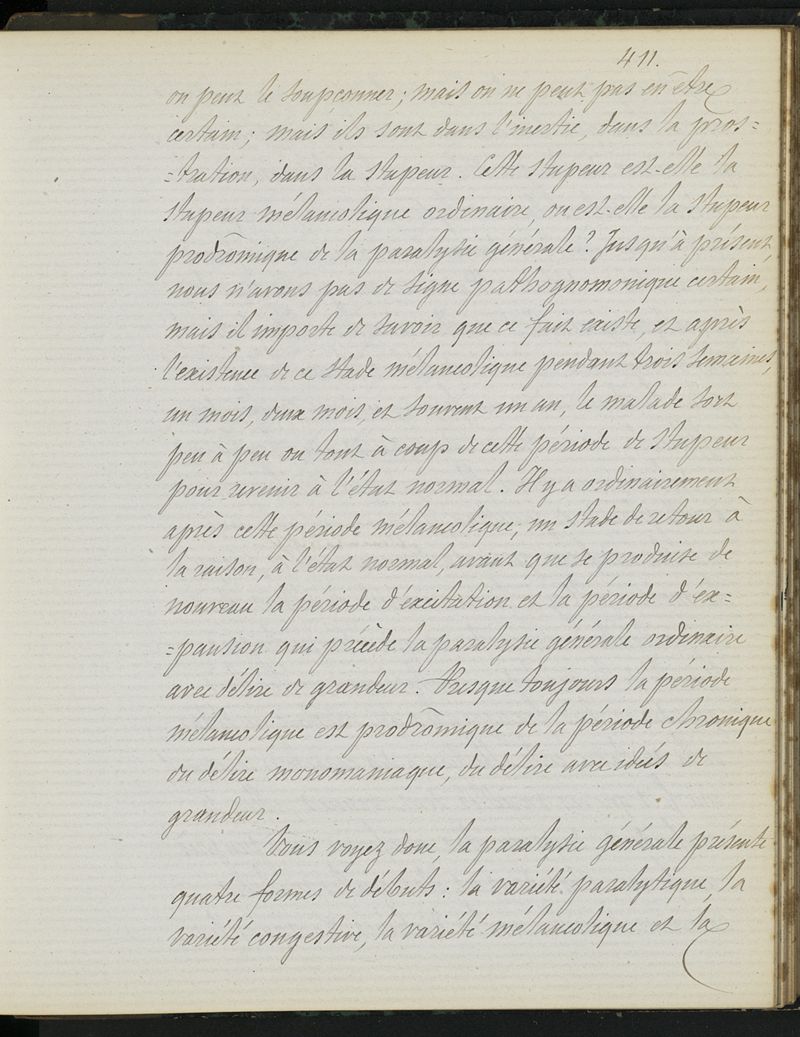 411.
on peut le soupçonner; mais on ne peut pas en être
certain; mais ils sont dans l'inertie, dans la pros=
=tration, dans la stupeur. Cette stupeur est-elle la
stupeur mélancolique ordinaire, ou est-elle la stupeur
prodrômique de la paralysie générale? Jusqu'à présent
nous n'avons pas de signe pathognomonique certain,
mais il importe de savoir que ce fait existe, et après
l'existence de ce stade mélancolique pendant trois semaines,
un mois, deux mois, et souvent un an, le malade sort
peu à peu ou tout à coup de cette période de stupeur
pour revenir à l'état normal. Il y a ordinairement
après cette période mélancolique, un stade de retour à
la raison, à l'état normal, avant que se produise de
nouveau la période d'excitation et la période d'ex=
=pansion qui précède la paralysie générale ordinaire
avec délire de grandeur. Presque toujours la période
mélancolique est prodrômique de la période chronique
du délire monomaniaque, du délire avec idées de
grandeur.
Vous voyez donc, la paralysie générale présente
quatre formes de débuts: la variété paralytique, la
variété congestive, la variété mélancolique et la